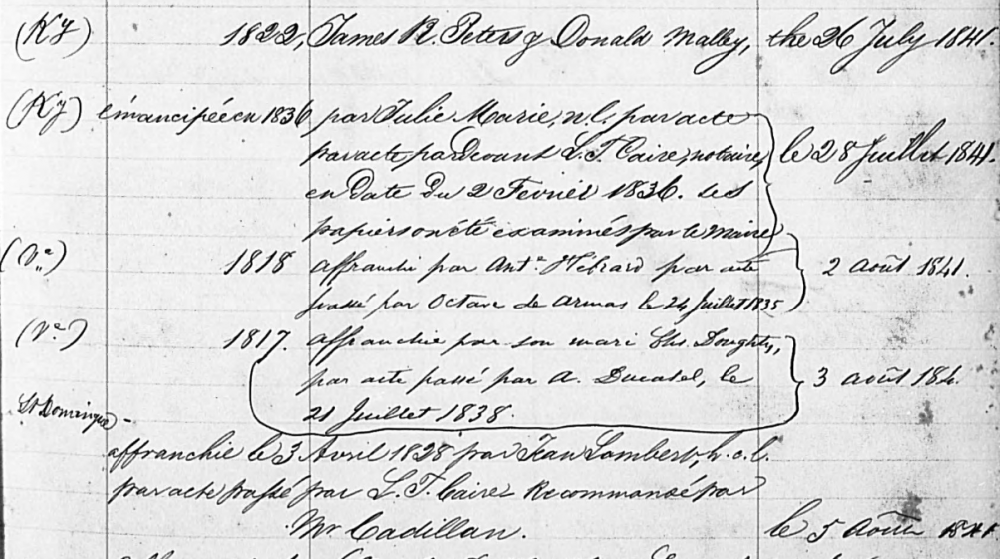 (Ky) 1822, James R. Peters & Donald Malby, the 26 July 1841.
(Ky) émancipée en 1836 par Julie Marie, n.l. par acte
par acte par Devant L. T. Caire, notaire, le 28 Juillet 1841.
en Date Du 2 Fevrier 1836. Les
papiers ont été examinés par le Maire
(Va) 1818 affranchi par Ante Hébrard par acte 2 août 1841.
passé par Octave de Armas le 24 Juillet 1835
(Va) 1817. affranchie par son mari Chs. Doughty,
par acte passé par A. Ducatel, le 3 août 184.
St Domingue 21 Juillet 1838.
affranchie le 3 Avril 1828 par Jean Lambert, h.c.l.
par acte passé par L. T. Caire Recommandé par
Mr Cadillan. le 5 Août 1841